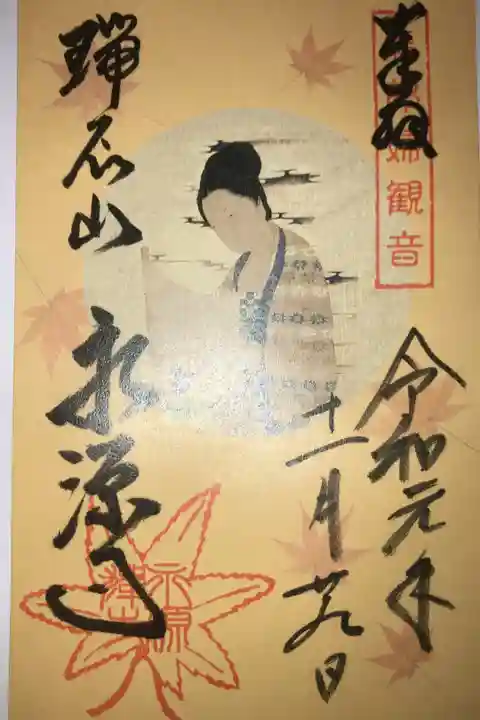 奉拝
婦観音
令和元年
十一月廿九日
瑞石山
永源寺
永源